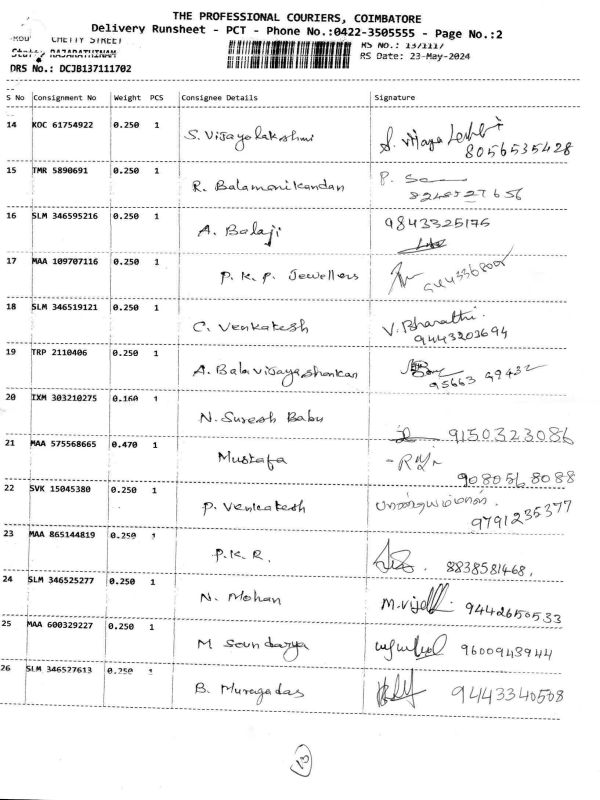 THE PROFESSIONAL COURIERS, COIMBATORE
Delivery Runsheet - PCT - Phone No.:0422-3505555 - Page No.:2
CHETTY STREET
RAJARATHINAM
RS No.: 1371117
RS Date: 23-May-2024
DRS No.: DCJB137111702
S No Consignment No Weight PCS Consignee Details Signature
14 KOC 61754922 0.250 1 S. Vijayalakshmi S. Vijaya
8056535428
15 TMR 5890691 0.250 1 R. Balamanikandan P.
16 SLM 346595216 0.250 1 A. Balaji 9843325175
17 MAA 109707116 0.250 1 P. K. P. Jewellers
18 SLM 346519121 0.250 1 C. Venkatesh V. Bharathi.
9443203694
19 TRP 2110406 0.250 1 A. Balavijayashankar
95663 99432
20 IXM 303210275 0.160 1 N. Suresh Babu 9150323086
21 MAA 575568665 0.470 1 Mustafa
9080568088
22 SVK 15045380 0.250 1 P. Venkatesh
9791235377
23 MAA 865144819 0.250 1 P.K.R. 8838581468.
24 SLM 346525277 0.250 1 N. Mohan 9442650533
25 MAA 600329227 0.250 1 M Soundarya 9600943944
26 SLM 346527613 0.250 1 B. Murugadas 9443340508
13